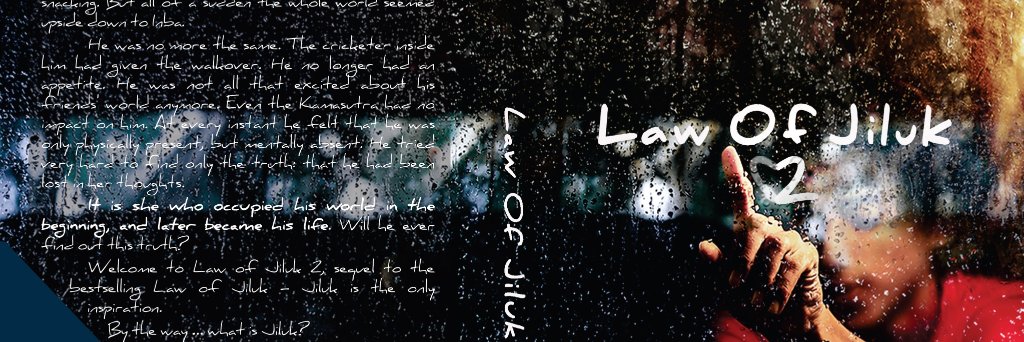 snacking. But all of a sudden the whole world seemed
upside down to Inba.
He was no more the same. The cricketer inside
him had given the walkover. He no longer had an
appetite. He was not all that excited about his
friends world anymore. Even the Kamasutra had no
impact on him. At every instant he felt that he was
only physically present, but mentally absent. He tried
very hard to find only the truth: that he had been
lost in her thoughts.
It is she who occupied his world in the
beginning, and later became his life. Will he ever
find out this truth?
Welcome to Law of Jiluk 2, sequel to the
bestselling Law of Jiluk - Jiluk is the only
inspiration.
By the way ... what is Jiluk?
Law Of Jiluk
Law Of Jiluk
2